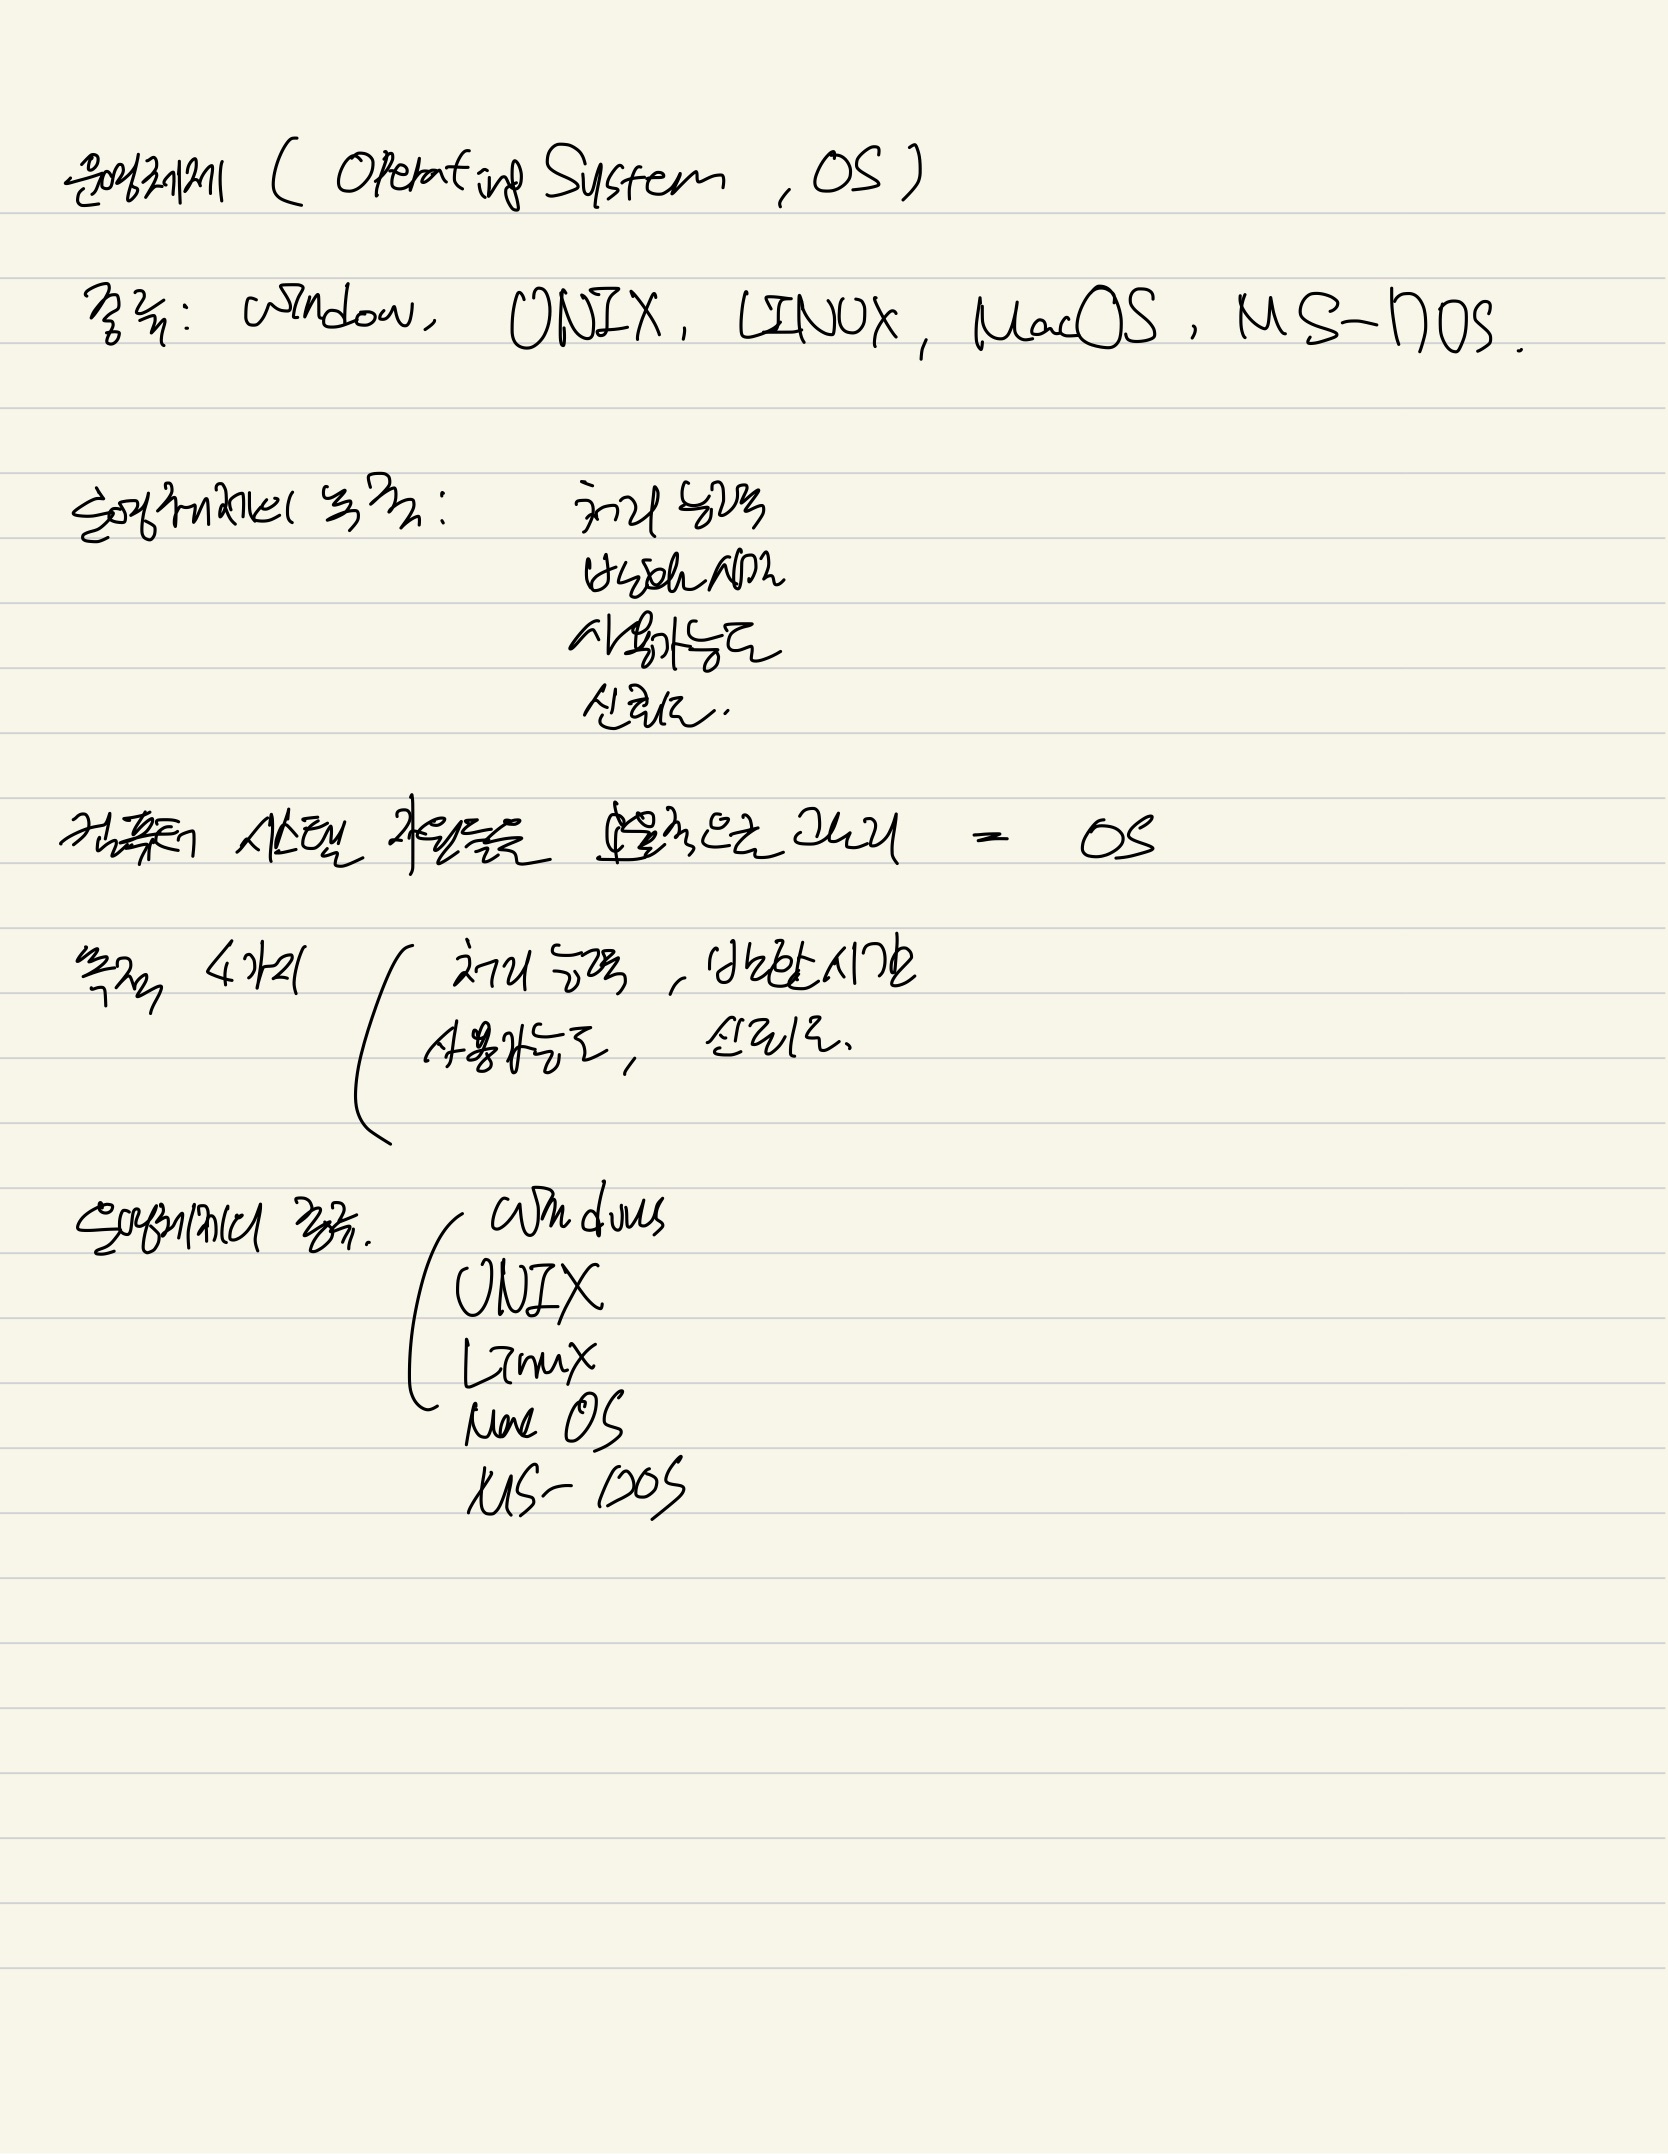 운영체제 ( Operating System , OS )
종류: Window, UNIX, LINUX, MacOS, MS-DOS.
운영체제의 목적: 처리 능력
반환 시간
사용가능도
신뢰도.
컴퓨터 시스템 자원들을 효율적으로 관리 = OS
목적 4가지 ( 처리 능력, 반환 시간
사용가능도, 신뢰도.
운영체제의 종류. ( Windows
UNIX
Linux
Mac OS
MS-DOS